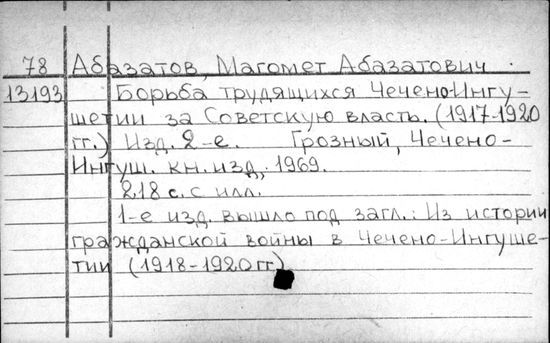 78 Абазатов, Магомет Абазатович
13193 Борьба трудящихся Чечено-Ингу-
шетии за Советскую власть. (1917-1920
гг.) Изд. 2-е. Грозный, Чечено-
Ингуш. кн. изд, 1969.
218 с. с илл.
1-е изд. вышло под загл.: Из истории
гражданской войны в Чечено-Ингуше-
тии (1918-1920 гг)